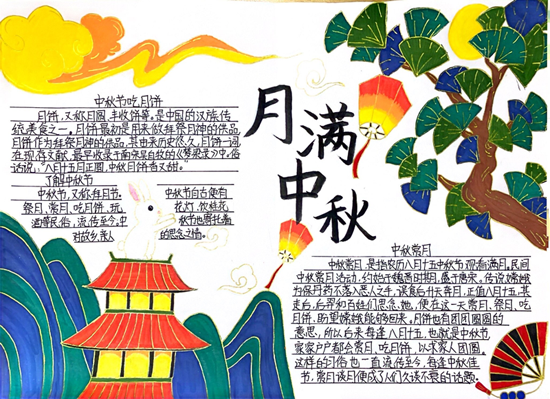 中秋节吃月饼
月饼，又称月团、丰收饼等，是中国的汉族传
统美食之一。月饼最初是用来做拜祭月神的供品。
月饼作为拜祭月神的供品，其由来历史悠久。月饼一词，
在现存文献，最早收录于南宋吴自牧的《梦粱录》中。俗
话说："八月十五月正圆，中秋月饼香又甜。"
了解中秋节
中秋节，又称拜月节。
祭月、赏月、吃月饼、玩
酒等民俗，流传至今，中
对故乡，亲人
中秋节自古便有
花灯、饮桂花
秋节也寄托着
的思念之情。
月满中秋
中秋赏月
中秋赏月，是指农历八月十五中秋节观看满月。民间
中秋赏月活动，约始于魏晋时期，盛于唐宋。传说嫦娥
为保丹药不落入恶人之手，误食后升天奔月，正值八月十五，其
走后，后羿和百姓们思念她，便在这一天祭月、赏月、吃
月饼，盼望嫦娥能够回来。月饼也有团团圆圆的
意思，所以后来每逢八月十五，也就是中秋节，
家家户户都会赏月、吃月饼，以求家人团圆。
这样的习俗也一直流传至今，每逢中秋佳
节，赏月谈月便成了人们久谈不衰的话题。